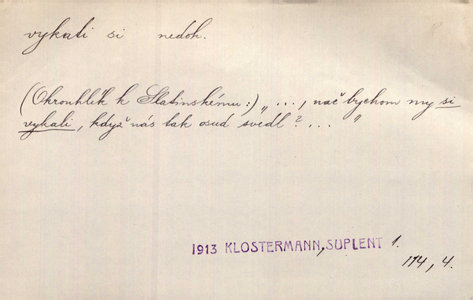 vykati si nedok.
(Okrouhlík k Slatinskému:) „ ..., nač bychom my si
vykali, když nás tak osud svedl? ... "
1913 KLOSTERMANN, SUPLENT 1.
174, 4.